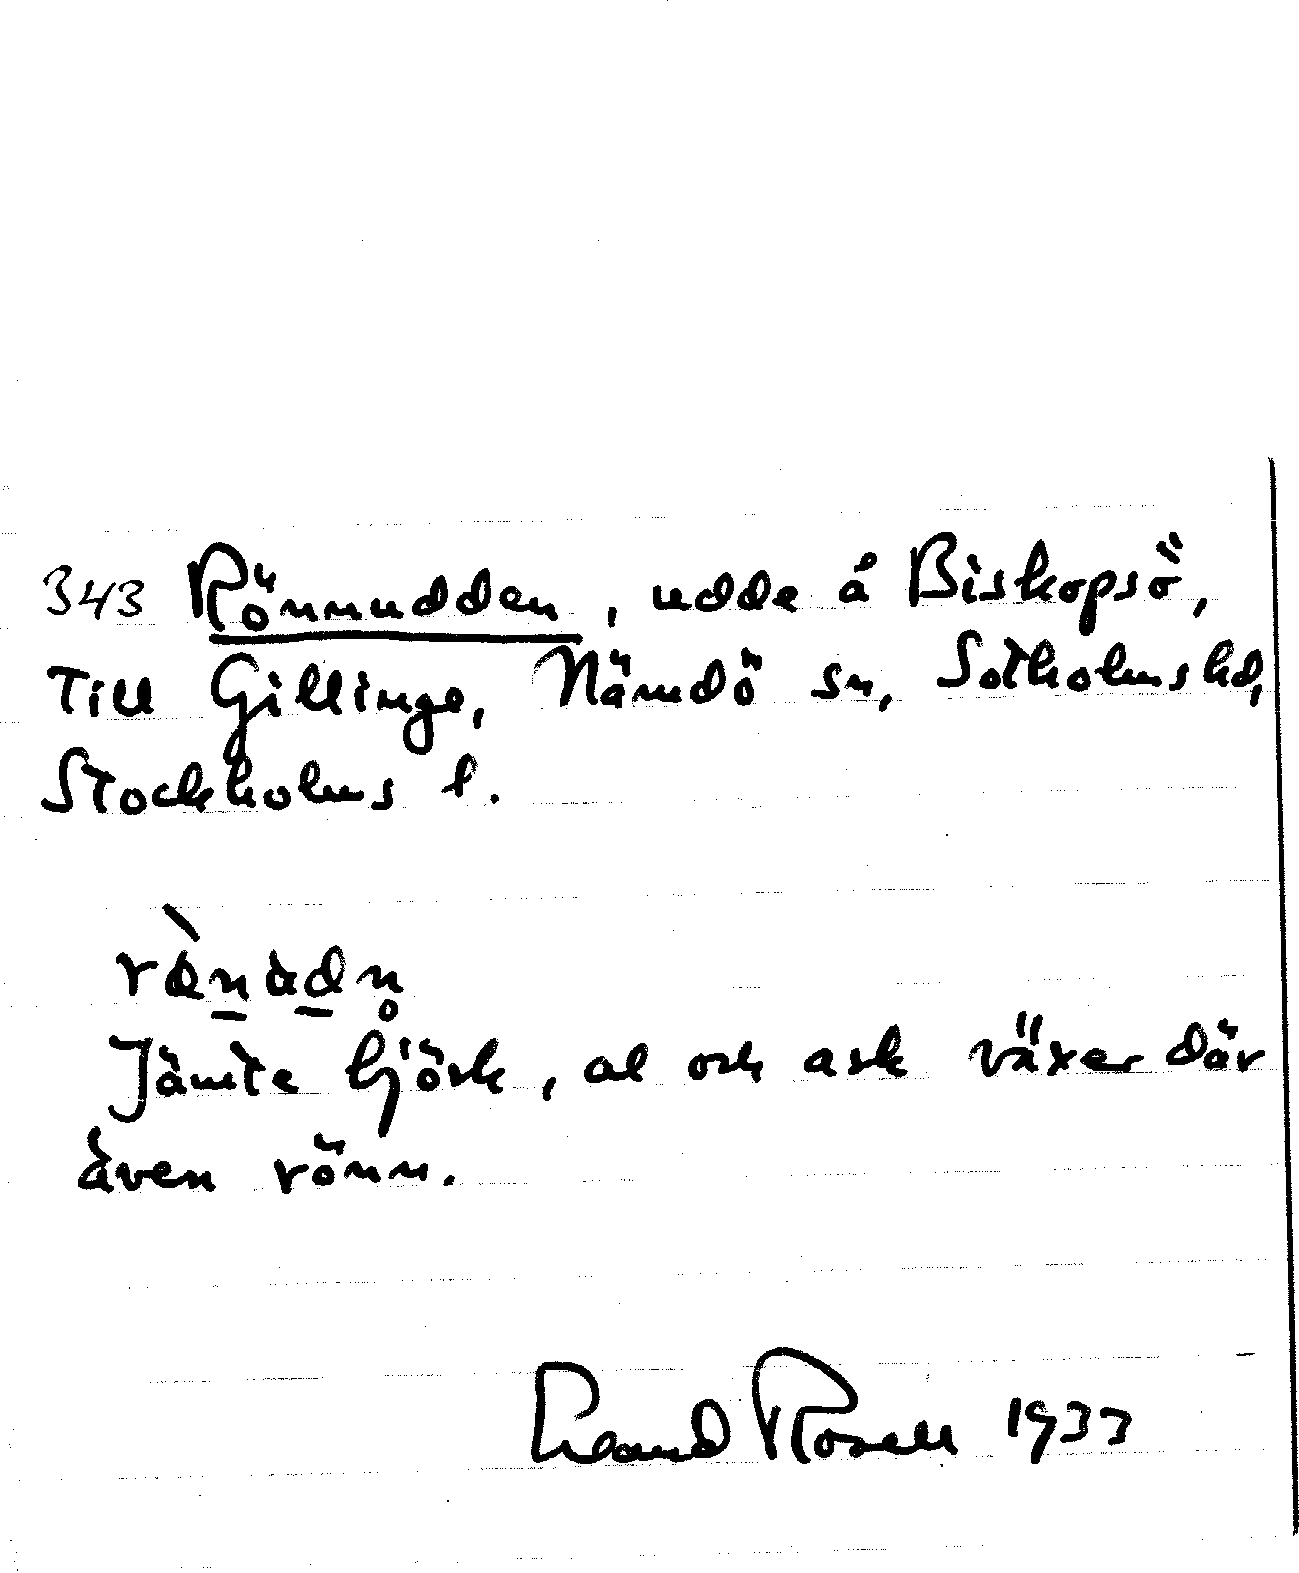 343 Rönnudden, udde å Biskopsö,
Till Gillinge, Nämdö sn, Sotholms hd,
Stockholms l.
Jämte björk, al och ask växer där
även rönn.
Rosell 1933